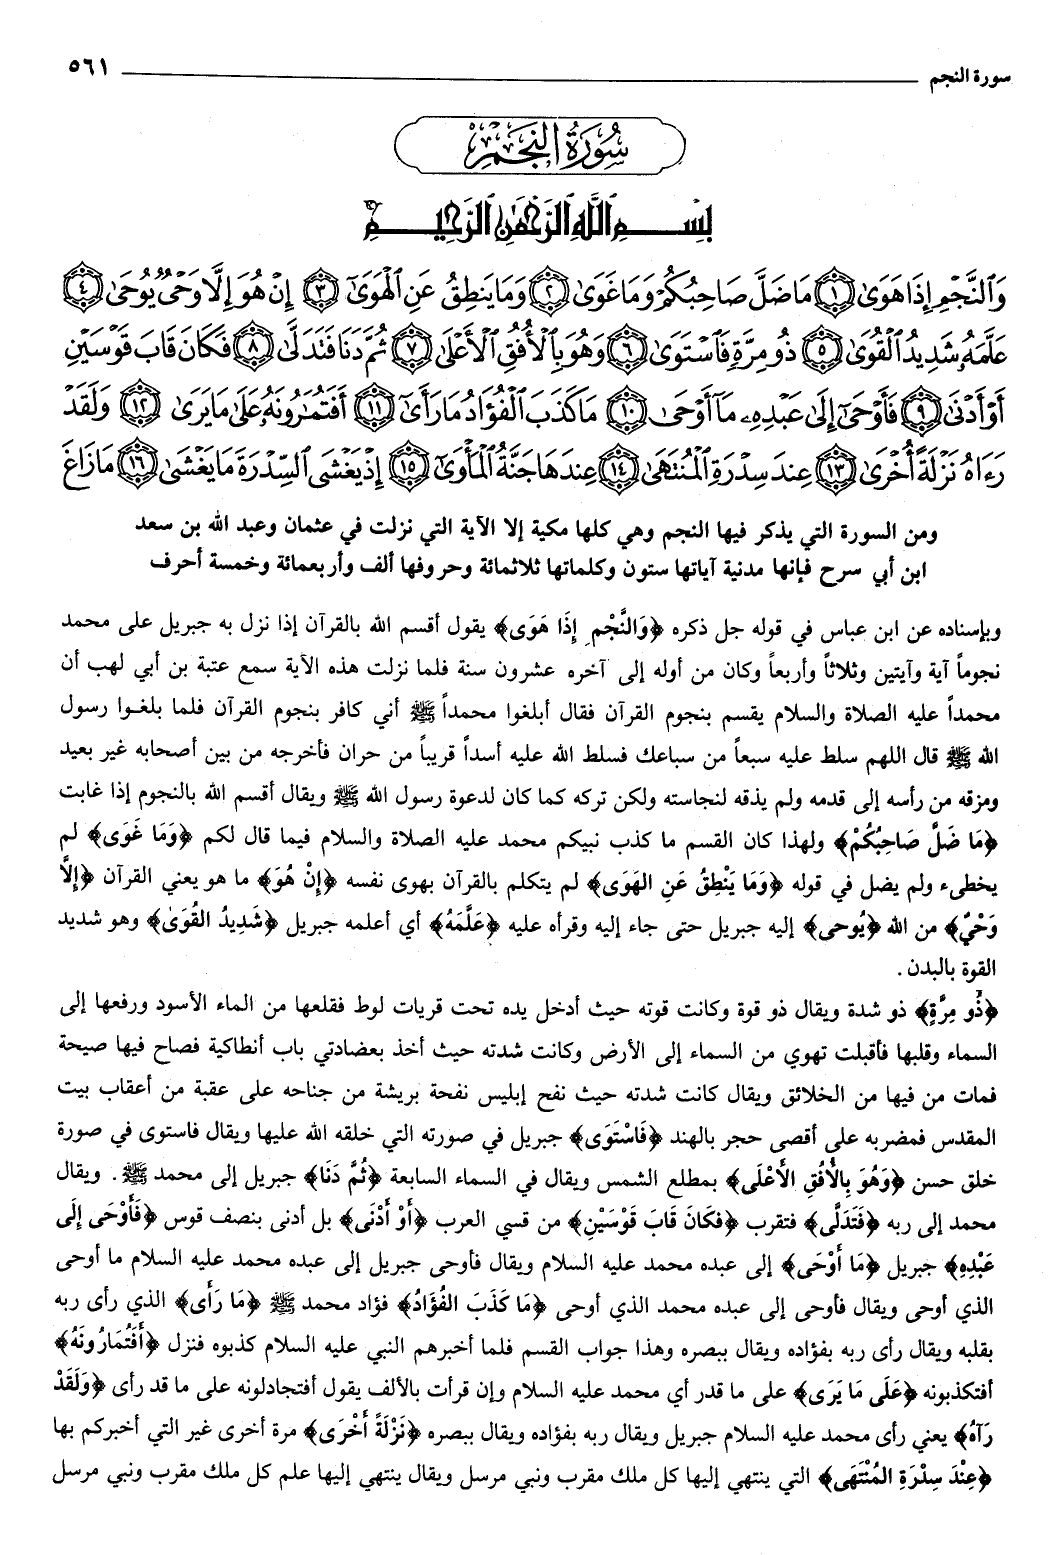 سورة النجم ٥٦١
سُورَةُ النَّجْمِ
بِسْمِ ٱللَّهِ ٱلرَّحْمَٰنِ ٱلرَّحِيمِ
وَٱلنَّجْمِ إِذَا هَوَىٰ ١ مَا ضَلَّ صَاحِبُكُمْ وَمَا غَوَىٰ ٢ وَمَا يَنطِقُ عَنِ ٱلْهَوَىٰٓ ٣ إِنْ هُوَ إِلَّا وَحْىٌ يُوحَىٰ ٤
عَلَّمَهُۥ شَدِيدُ ٱلْقُوَىٰ ٥ ذُو مِرَّةٍ فَٱسْتَوَىٰ ٦ وَهُوَ بِٱلْأُفُقِ ٱلْأَعْلَىٰ ٧ ثُمَّ دَنَا فَتَدَلَّىٰ ٨ فَكَانَ قَابَ قَوْسَيْنِ
أَوْ أَدْنَىٰ ٩ فَأَوْحَىٰٓ إِلَىٰ عَبْدِهِۦ مَآ أَوْحَىٰ ١٠ مَا كَذَبَ ٱلْفُؤَادُ مَا رَأَىٰٓ ١١ أَفَتُمَٰرُونَهُۥ عَلَىٰ مَا يَرَىٰ ١٢ وَلَقَدْ
رَءَاهُ نَزْلَةً أُخْرَىٰ ١٣ عِندَ سِدْرَةِ ٱلْمُنتَهَىٰ ١٤ عِندَهَا جَنَّةُ ٱلْمَأْوَىٰٓ ١٥ إِذْ يَغْشَى ٱلسِّدْرَةَ مَا يَغْشَىٰ ١٦ مَا زَاغَ
ومن السورة التي يذكر فيها النجم وهي كلها مكية إلا الآية التي نزلت في عثمان وعبد الله بن سعد
ابن أبي سرح فإنها مدنية آياتها ستون وكلماتها ثلاثمائة وحروفها ألف وأربعمائة وخمسة أحرف
وبإسناده عن ابن عباس في قوله جل ذكره ﴿وَالنَّجْمِ إِذَا هَوَى﴾ يقول أقسم الله بالقرآن إذا نزل به جبريل على محمد
نجوماً آية وآيتين وثلاثاً وأربعاً وكان من أوله إلى آخره عشرون سنة فلما نزلت هذه الآية سمع عتبة بن أبي لهب أن
محمداً عليه الصلاة والسلام يقسم بنجوم القرآن فقال أبلغوا محمداً ﷺ أني كافر بنجوم القرآن فلما بلغوا رسول
الله ﷺ قال اللهم سلط عليه سبعاً من سباعك فسلط الله عليه أسداً قريباً من حران فأخرجه من بين أصحابه غير بعيد
ومزقه من رأسه إلى قدمه ولم يذقه لنجاسته ولكن تركه كما كان لدعوة رسول الله ﷺ ويقال أقسم الله بالنجوم إذا غابت
﴿مَا ضَلَّ صَاحِبُكُمْ﴾ ولهذا كان القسم ما كذب نبيكم محمد عليه الصلاة والسلام فيما قال لكم ﴿وَمَا غَوَى﴾ لم
يخطىء ولم يضل في قوله ﴿وَمَا يَنْطِقُ عَنِ الهَوَى﴾ لم يتكلم بالقرآن بهوى نفسه ﴿إِنْ هُوَ﴾ ما هو يعني القرآن ﴿إِلَّا
وَحْيٌ﴾ من الله ﴿يُوحى﴾ إليه جبريل حتى جاء إليه وقرأه عليه ﴿عَلَّمَهُ﴾ أي أعلمه جبريل ﴿شَدِيدُ القُوَىٰ﴾ وهو شديد
القوة بالبدن .
﴿ذُو مِرَّةٍ﴾ ذو شدة ويقال ذو قوة وكانت قوته حيث أدخل يده تحت قريات لوط فقلعها من الماء الأسود ورفعها إلى
السماء وقلبها فأقبلت تهوي من السماء إلى الأرض وكانت شدته حيث أخذ بعضادتي باب أنطاكية فصاح فيها صيحة
فمات من فيها من الخلائق ويقال كانت شدته حيث نفح إبليس نفحة بريشة من جناحه على عقبة من أعقاب بيت
المقدس فمضربه على أقصى حجر بالهند ﴿فَاسْتَوَى﴾ جبريل في صورته التي خلقه الله عليها ويقال فاستوى في صورة
خلق حسن ﴿وَهُوَ بِالأُفُقِ الأَعْلَى﴾ بمطلع الشمس ويقال في السماء السابعة ﴿ثُمَّ دَنَا﴾ جبريل إلى محمد ﷺ . ويقال
محمد إلى ربه ﴿فَتَدَلَّى﴾ فتقرب ﴿فكَانَ قَابَ قَوْسَيْنِ﴾ من قسي العرب ﴿أَوْ أَدْنَى﴾ بل أدنى بنصف قوس ﴿فَأَوْحَى إِلَى
عَبْدِهِ﴾ جبريل ﴿مَا أَوْحَى﴾ إلى عبده محمد عليه السلام ويقال فأوحى جبريل إلى عبده محمد عليه السلام ما أوحى
الذي أوحى ويقال فأوحى إلى عبده محمد الذي أوحى ﴿مَا كَذَبَ الفُؤَادُ﴾ فؤاد محمد ﷺ ﴿مَا رَأَى﴾ الذي رأى ربه
بقلبه ويقال رأى ربه بفؤاده ويقال ببصره وهذا جواب القسم فلما أخبرهم النبي عليه السلام كذبوه فنزل ﴿أَفَتُمَارُونَهُ﴾
أفتكذبونه ﴿عَلَى مَا يَرَى﴾ على ما قدر أي محمد عليه السلام وإن قرأت بالألف يقول أفتجادلونه على ما قد رأى ﴿وَلَقَدْ
رَآهُ﴾ يعني رأى محمد عليه السلام جبريل ويقال ربه بفؤاده ويقال ببصره ﴿نَزْلَةً أُخْرَى﴾ مرة أخرى غير التي أخبركم بها
﴿عِنْدَ سِدْرَةِ المُنْتَهَى﴾ التي ينتهي إليها كل ملك مقرب ونبي مرسل ويقال ينتهي إليها علم كل ملك مقرب ونبي مرسل